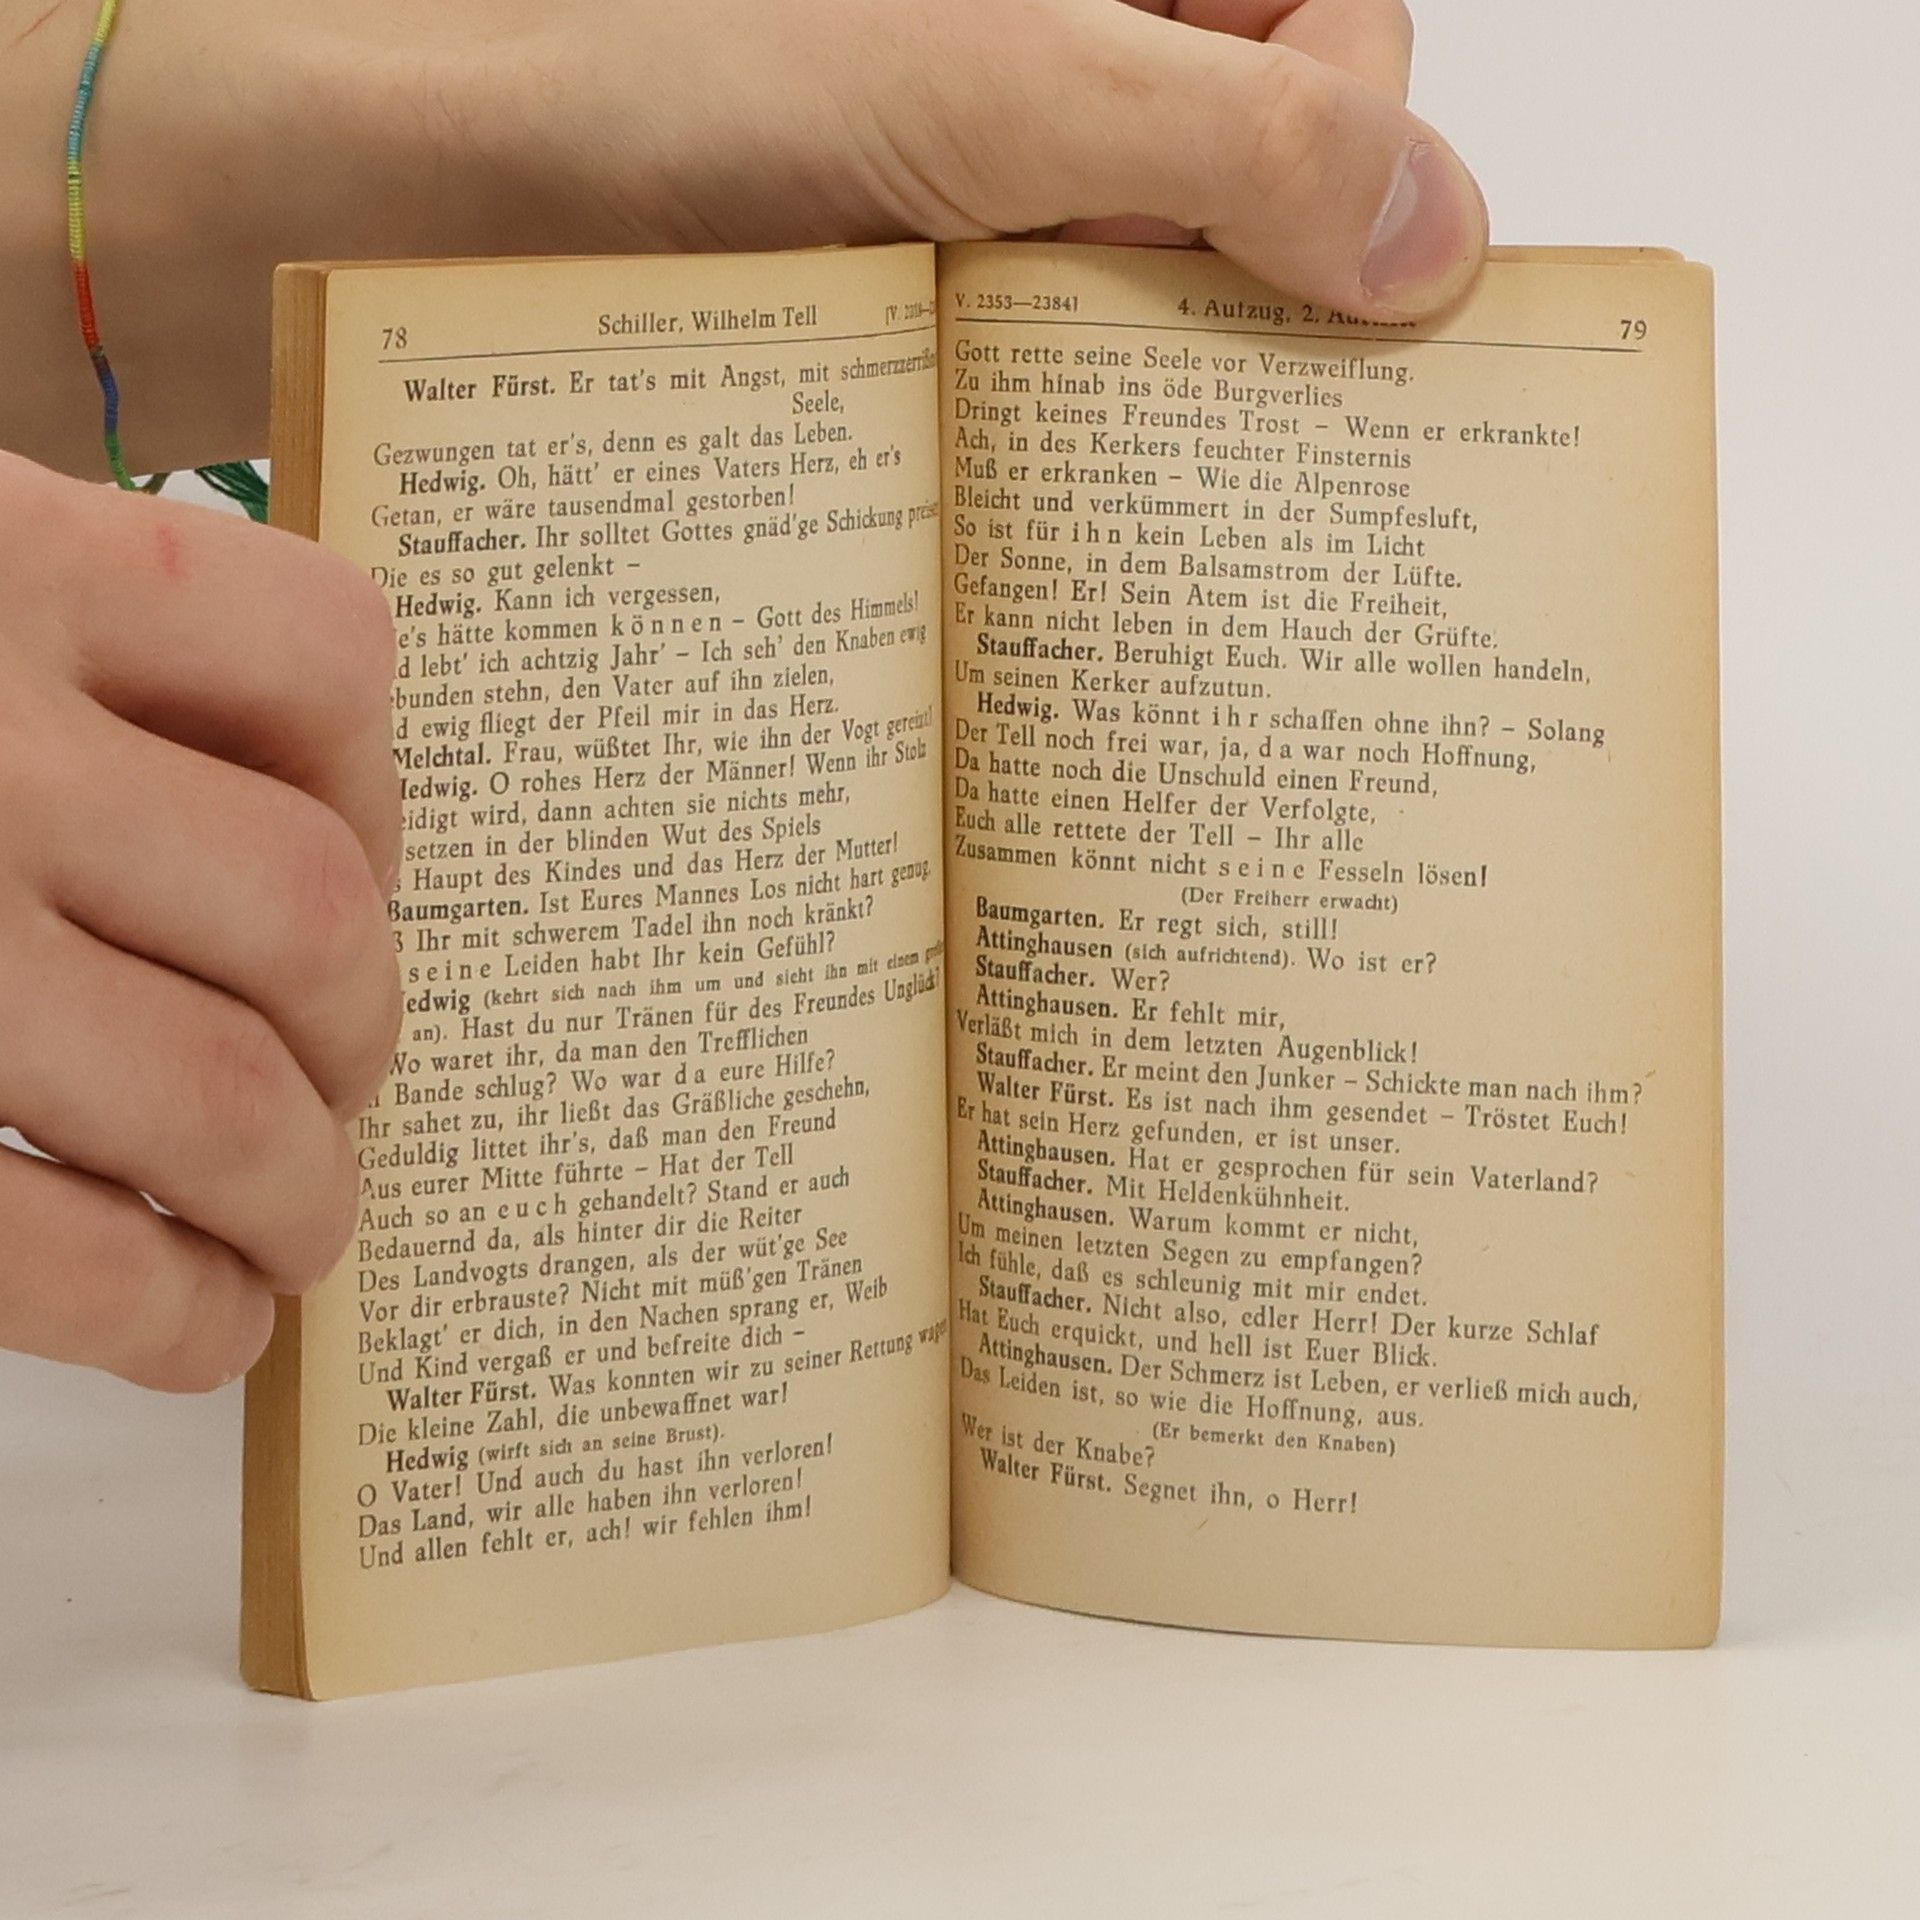 78 Schiller, Wilhelm Tell
Walter Fürst. Er tat's mit Angst, mit
Seele,
Gezwungen tat er's, denn es galt das Leben.
Hedwig. Oh, hätt' er eines Vaters Herz, eh er's
Getan, er wäre tausendmal gestorben!
Stauffacher. Ihr solltet Gottes gnäd'ge Schickung
Die es so gut gelenkt –
Hedwig. Kann ich vergessen,
hätte kommen können – Gott des Himmels!
lebt' ich achtzig Jahr' – Ich seh' den Knaben ewig
stehn, den Vater auf ihn zielen,
ewig fliegt der Pfeil mir in das Herz.
Melchtal. Frau, wüßtet Ihr, wie ihn der Vogt gereizt!
O rohes Herz der Männer! Wenn ihr Stolz
wird, dann achten sie nichts mehr,
setzen in der blinden Wut des Spiels
Haupt des Kindes und das Herz der Mutter!
Baumgarten. Ist Eures Mannes Los nicht hart genug,
Ihr mit schwerem Tadel ihn noch kränkt?
seine Leiden habt Ihr kein Gefühl?
(kehrt sich nach ihm um und sieht ihn mit einem
an). Hast du nur Tränen für des Freundes Unglück?
Wo waret ihr, da man den Trefflichen
Bande schlug? Wo war da eure Hilfe?
Ihr sahet zu, ihr ließt das Gräßliche geschehn,
Geduldig littet ihr's, daß man den Freund
Aus eurer Mitte führte – Hat der Tell
Auch so an euch gehandelt? Stand er auch
Bedauernd da, als hinter dir die Reiter
Des Landvogts drangen, als der wüt'ge See
Vor dir erbrauste? Nicht mit müß'gen Tränen
Beklagt' er dich, in den Nachen sprang er, Weib
Und Kind vergaß er und befreite dich –
Walter Fürst. Was konnten wir zu seiner Rettung wagen,
Die kleine Zahl, die unbewaffnet war!
Hedwig (wirft sich an seine Brust).
O Vater! Und auch du hast ihn verloren!
Das Land, wir alle haben ihn verloren!
Und allen fehlt er, ach! wir fehlen ihm!
V. 2353—2384] 4. Aufzug, 2. 79
Gott rette seine Seele vor Verzweiflung.
Zu ihm hinab ins öde Burgverlies
Dringt keines Freundes Trost – Wenn er erkrankte!
Ach, in des Kerkers feuchter Finsternis
Muß er erkranken – Wie die Alpenrose
Bleicht und verkümmert in der Sumpfesluft,
So ist für ihn kein Leben als im Licht
Der Sonne, in dem Balsamstrom der Lüfte.
Gefangen! Er! Sein Atem ist die Freiheit,
Er kann nicht leben in dem Hauch der Grüfte.
Stauffacher. Beruhigt Euch. Wir alle wollen handeln,
Um seinen Kerker aufzutun.
Hedwig. Was könnt ihr schaffen ohne ihn? – Solang
Der Tell noch frei war, ja, da war noch Hoffnung,
Da hatte noch die Unschuld einen Freund,
Da hatte einen Helfer der Verfolgte,
Euch alle rettete der Tell – Ihr alle
Zusammen könnt nicht seine Fesseln lösen!
(Der Freiherr erwacht)
Baumgarten. Er regt sich, still!
Attinghausen (sich aufrichtend). Wo ist er?
Stauffacher. Wer?
Attinghausen. Er fehlt mir,
Verläßt mich in dem letzten Augenblick!
Stauffacher. Er meint den Junker – Schickte man nach ihm?
Walter Fürst. Es ist nach ihm gesendet – Tröstet Euch!
Er hat sein Herz gefunden, er ist unser.
Attinghausen. Hat er gesprochen für sein Vaterland?
Stauffacher. Mit Heldenkühnheit.
Attinghausen. Warum kommt er nicht,
Um meinen letzten Segen zu empfangen?
Ich fühle, daß es schleunig mit mir endet.
Stauffacher. Nicht also, edler Herr! Der kurze Schlaf
Hat Euch erquickt, und hell ist Euer Blick.
Attinghausen. Der Schmerz ist Leben, er verließ mich auch,
Das Leiden ist, so wie die Hoffnung, aus.
(Er bemerkt den Knaben)
Wer ist der Knabe?
Walter Fürst. Segnet ihn, o Herr!